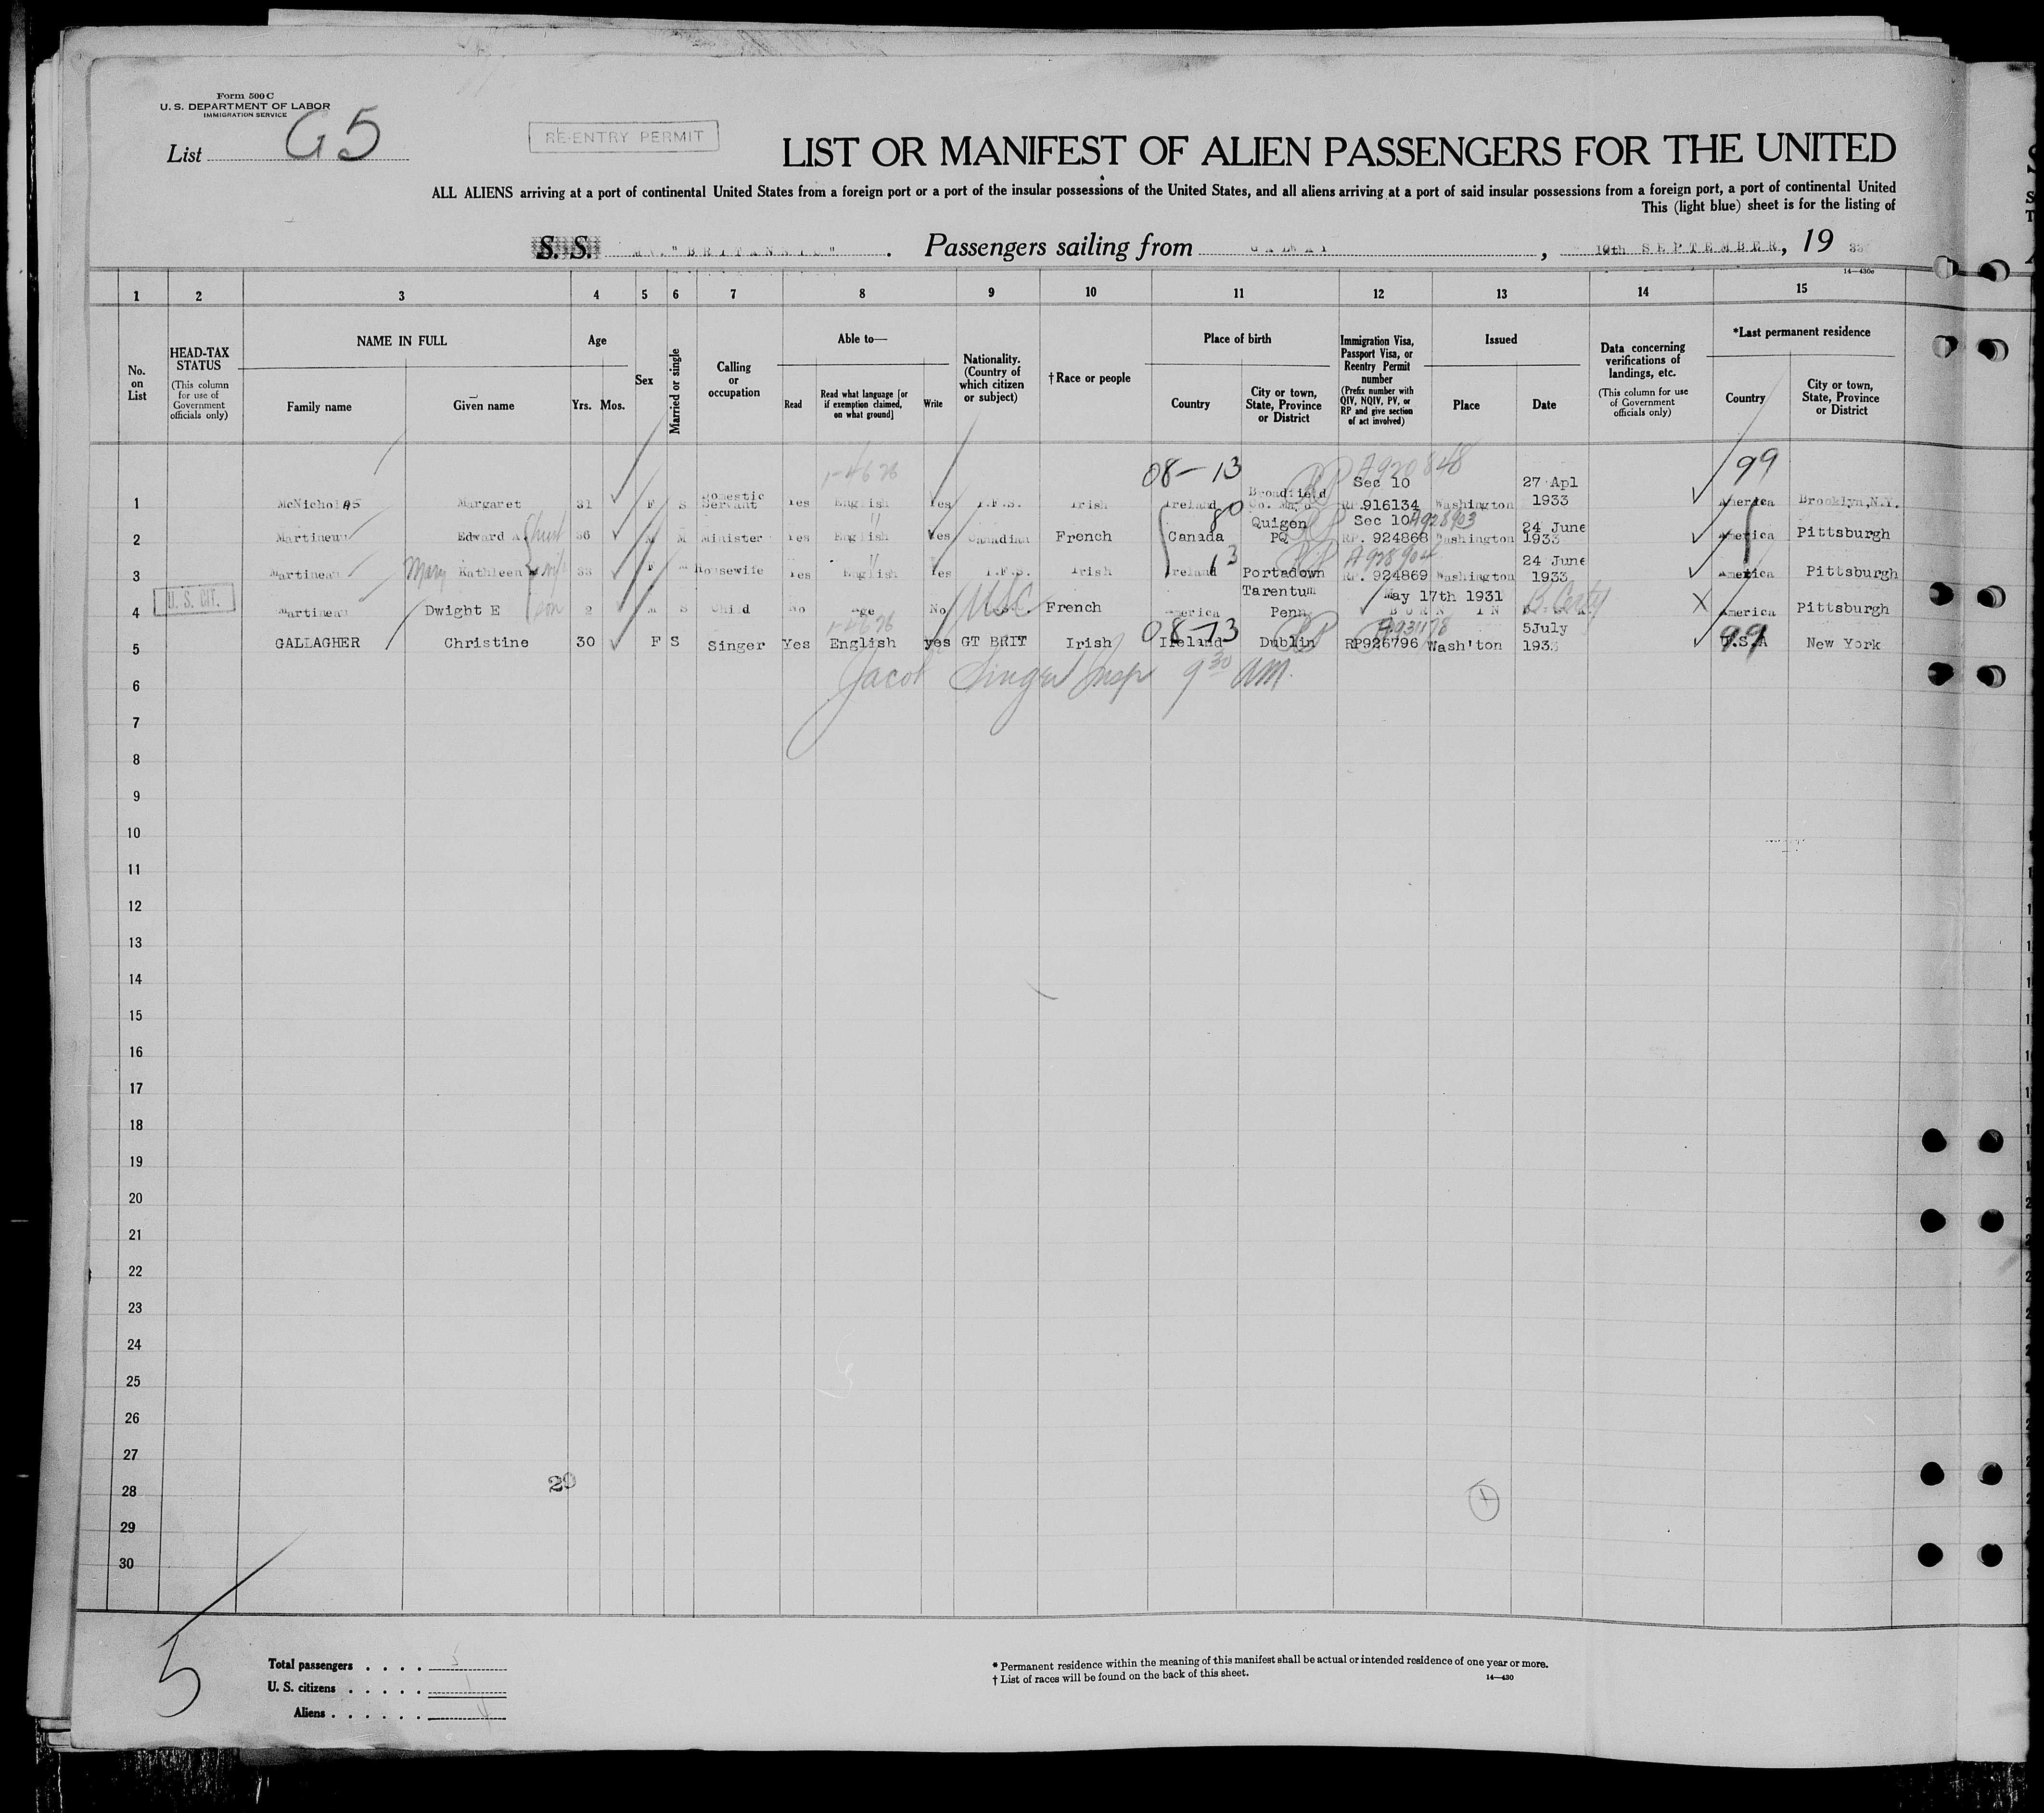 Form 500 C
U. S. DEPARTMENT OF LABOR
IMMIGRATION SERVICE
List G5
RE-ENTRY PERMIT
LIST OR MANIFEST OF ALIEN PASSENGERS FOR THE UNITED
ALL ALIENS arriving at a port of continental United States from a foreign port or a port of the insular possessions of the United States, and all aliens arriving at a port of said insular possessions from a foreign port, a port of continental United
This (light blue) sheet is for the listing of
S. S. MV. "BRITANNIC". Passengers sailing from GALWAY, 10th SEPTEMBER, 19 33
14—430c
1 2 3 4 5 6 7 8 9 10 11 12 13 14 15
No. on List
HEAD-TAX STATUS (This column for use of Government officials only)
NAME IN FULL Family name Given name
Age Yrs. Mos.
Sex
Married or single
Calling or occupation
Able to— Read Read what language [or if exemption claimed, on what ground] Write
Nationality. (Country of which citizen or subject)
†Race or people
Place of birth Country City or town, State, Province or District
Immigration Visa, Passport Visa, or Reentry Permit number (Prefix number with QIV, NQIV, PV, or RP and give section of act involved)
Issued Place Date
Data concerning verifications of landings, etc. (This column for use of Government officials only)
*Last permanent residence Country City or town, State, Province or District
1-4676 08-13 A920848 99
1 McNicholas Margaret 31 F S Domestic Servant Yes English Yes I.F.S. Irish Ireland Broadfield Co. Mayo RP Sec 10 RP.916134 Washington 27 Apl 1933 America Brooklyn,N.Y.
2 Martineau Edward A. husb 36 M M Minister Yes English Yes Canadian French 80 Canada Quigen PQ RP Sec 10 A928903 RP. 924868 Washington 24 June 1933 America Pittsburgh
3 Martineau Mary Kathleen wife 33 F M Housewife Yes English Yes I.F.S. Irish 13 Ireland Portadown RP A928904 RP. 924869 Washington 24 June 1933 America Pittsburgh
4 U. S. CIT. Martineau Dwight E son 2 M S Child No Age No USC French America Tarentum Penn May 17th 1931 BORN IN America Pittsburgh
1-4676 08-13 A931178 99
5 GALLAGHER Christine 30 F S Singer Yes English yes GT BRIT Irish Ireland Dublin RP RP926796 Wash'ton 5July 1933 U.S.A New York
6 Jacob Singer Insp 9 30 AM.
7
8
9
10
11
12
13
14
15
16
17
18
19
20
21
22
23
24
25
26
27
28 29
29
30
5
Total passengers . . . . 5
U. S. citizens . . . . . 1
Aliens . . . . . . 4
* Permanent residence within the meaning of this manifest shall be actual or intended residence of one year or more.
† List of races will be found on the back of this sheet.
14—430